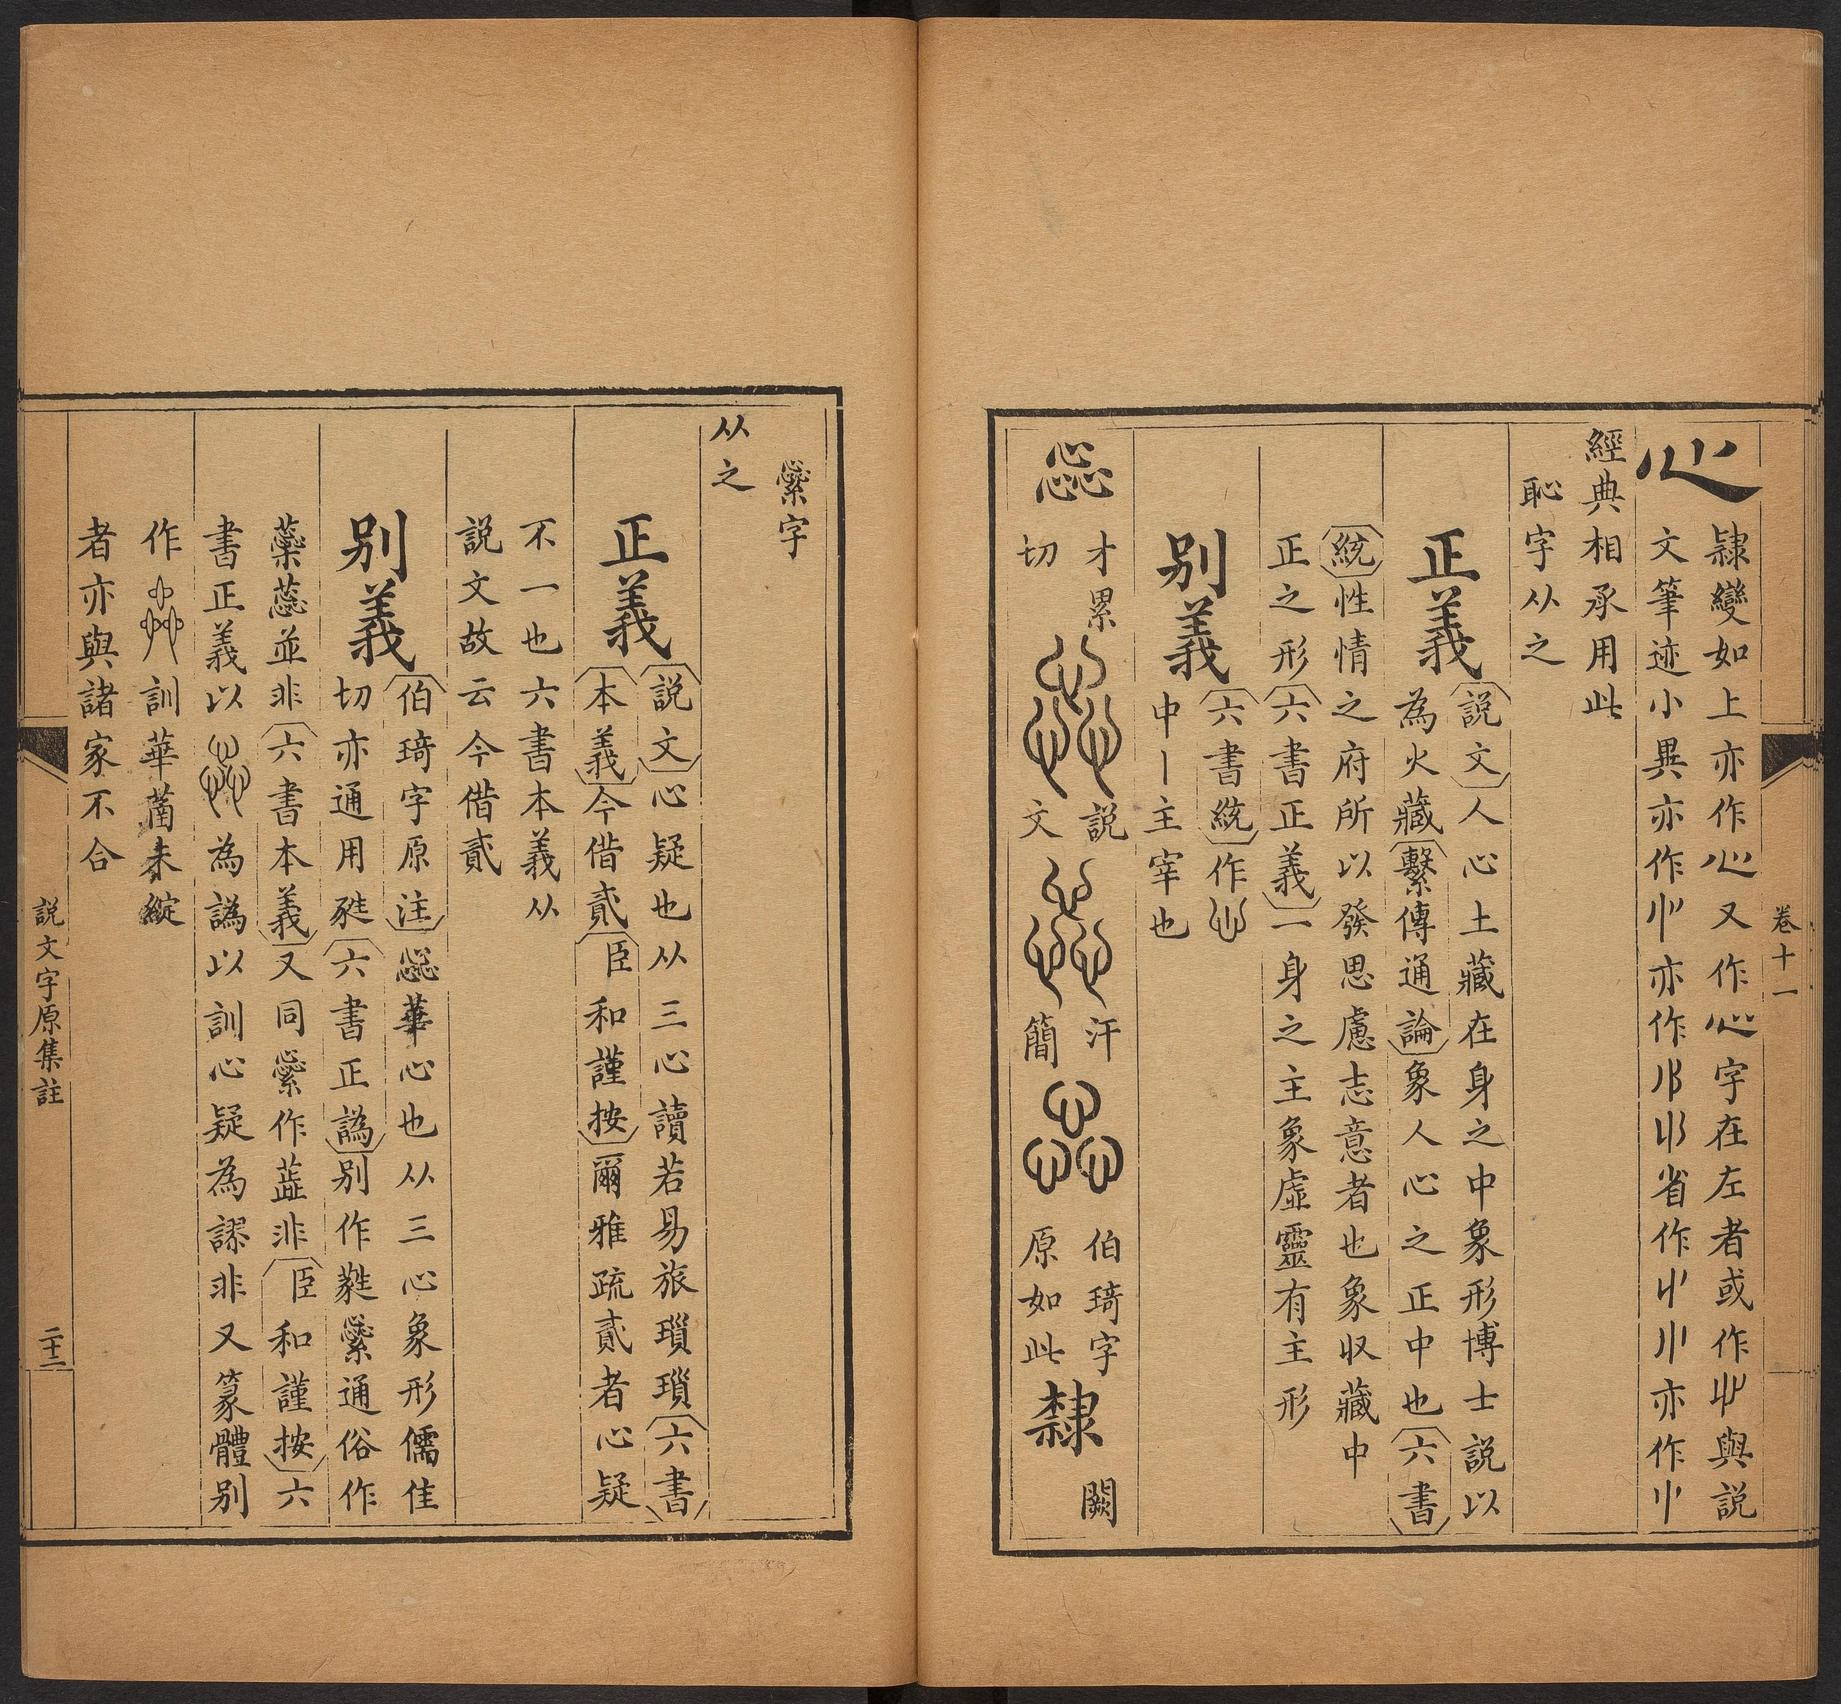 卷十一
心
隸變如上亦作心又作心字在左者或作忄與説
文筆迹小異亦作亦作省作亦作
經典相承用此
恥字从之
正義
説文人心土藏在身之中象形博士説以
為火藏繫傳通論象人心之正中也六書
統性情之府所以發思慮志意者也象収藏中
正之形六書正義一身之主象虛靈有主形
别義
六書統作
中丨主宰也
惢
才累
切
説
文
汗
簡
伯琦字
原如此
隸
闕
繠字
从之
正義
説文心疑也从三心讀若易旅瑣瑣六書
本義今借貳臣和謹按爾雅疏貳者心疑
不一也六書本義从
説文故云今借貳
别義
伯琦字原注惢華心也从三心象形儒佳
切亦通用甤六書正譌别作蕤繠通俗作
蘂蕊並非六書本義又同繠作蕋非臣和謹按六
書正義以為譌以訓心疑為謬非又篆體别
作訓華蕾未綻
者亦與諸家不合
説文字原集註
二十二